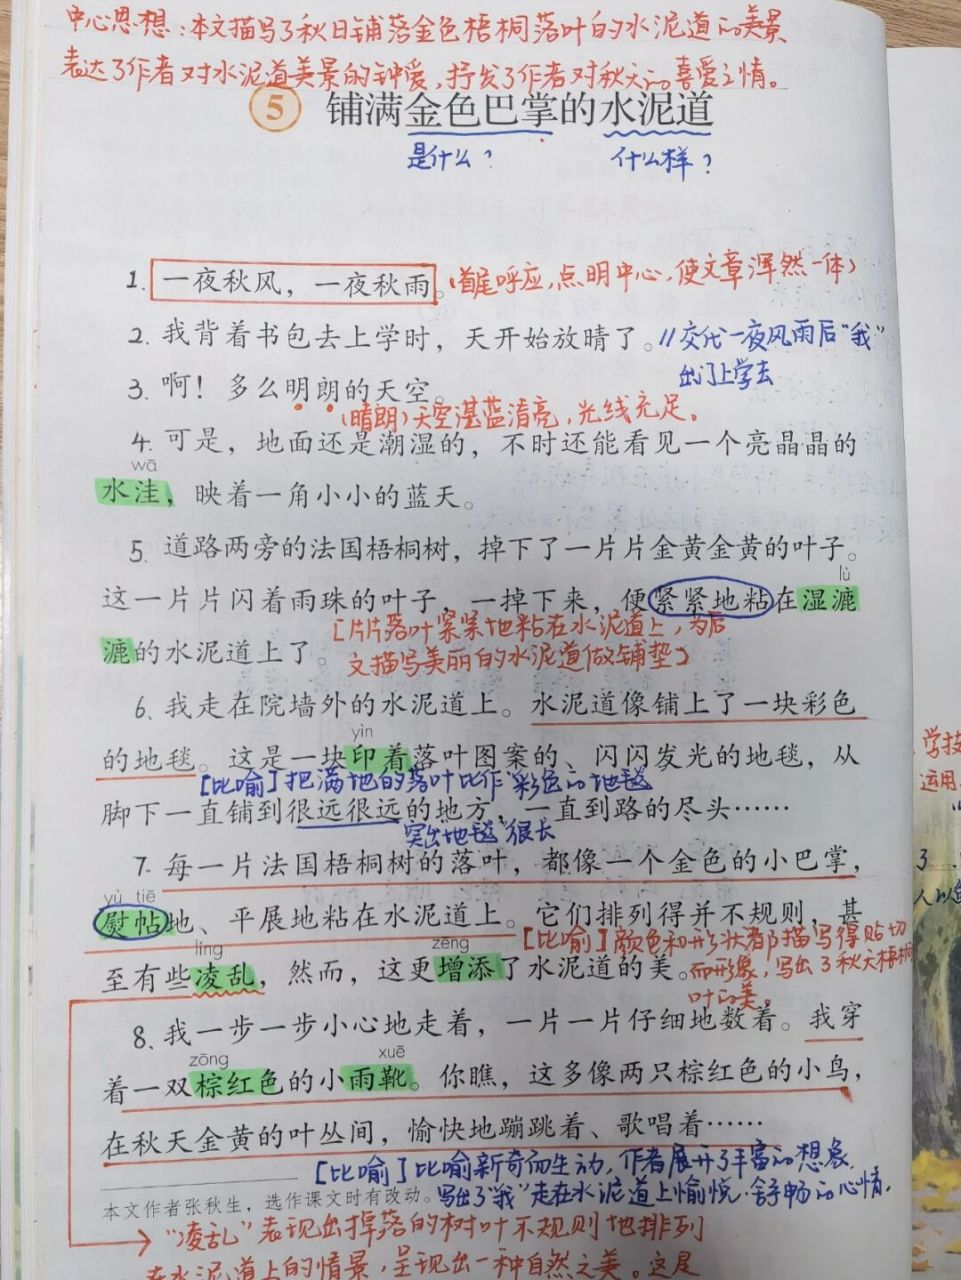 中心思想：本文描写了秋日铺落金色梧桐落叶的水泥道的美景
表达了作者对水泥道美景的钟爱，抒发了作者对秋天的喜爱之情。
5 铺满金色巴掌的水泥道
是什么？ 什么样？
1. 一夜秋风，一夜秋雨。（首尾呼应，点明中心，使文章浑然一体）
2. 我背着书包去上学时，天开始放晴了。//交代一夜风雨后“我”
出门上学去
3. 啊！多么明朗的天空。
（晴朗）天空湛蓝清亮，光线充足。
4. 可是，地面还是潮湿的，不时还能看见一个亮晶晶的
wā
水洼，映着一角小小的蓝天。
5. 道路两旁的法国梧桐树，掉下了一片片金黄金黄的叶子。
lù
这一片片闪着雨珠的叶子，一掉下来，便紧紧地粘在湿漉
[片片落叶紧紧地粘在水泥道上，为后
漉的水泥道上了。
文描写美丽的水泥道做铺垫]
6. 我走在院墙外的水泥道上。水泥道像铺上了一块彩色
yìn
的地毯。这是一块印着落叶图案的、闪闪发光的地毯，从
[比喻]把满地的落叶比作“彩色的地毯
脚下一直铺到很远很远的地方，一直到路的尽头……
突出地毯“很长
7. 每一片法国梧桐树的落叶，都像一个金色的小巴掌，
yù tiē
熨帖地、平展地粘在水泥道上。它们排列得并不规则，甚
[比喻]颜色和形状都描写得贴切
líng zēng
至有些凌乱，然而，这更增添了水泥道的美。
而形象，写出了秋天梧桐
叶的美。
8. 我一步一步小心地走着，一片一片仔细地数着。我穿
zōng xuē
着一双棕红色的小雨靴。你瞧，这多像两只棕红色的小鸟，
在秋天金黄的叶丛间，愉快地蹦跳着、歌唱着……
[比喻]比喻新奇而生动，作者展开了丰富的想象，
本文作者张秋生，选作课文时有改动。
写出了“我”走在水泥道上愉悦、舒畅的心情。
“凌乱”表现出掉落的树叶不规则地排列
在水泥道上的情景，呈现出一种自然之美。这是
学技
运用
3
人以